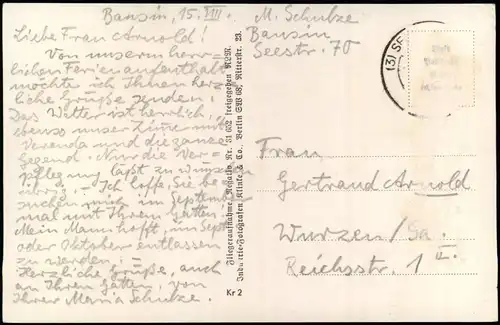 Bansin, 15. VIII.
Liebe Frau Arnold!
Von unserm herr-
lichen Ferienaufenthalt
möchte ich Ihnen herz-
liche Grüße senden.
Das Wetter ist herrlich,
ebenso unser Zimmer mit
Veranda und die ganze
Gegend. Nur die Ver-
pflegung läßt zu wünschen
übrig. – Ich hoffe, Sie be-
suchen mich im September
mal mit Ihrem Gatten.
Mein Mann hofft, im Sept.
oder Oktober entlassen
zu werden.
Herzliche Grüße, auch
an Ihren Gatten, von
Ihrer Maria Schulze.
Fliegeraufnahme, Regalia, Nr. 31 652 freigegeben RLM.
Industrie-Fotografen Klinke & Co. Berlin SW 68, Ritterstr. 23.
Kr 2
M. Schulze
Bansin
Seestr. 70
(3) SE
Frau
Gertraud Arnold
Wurzen/Sa.
Reichsstr. 1 II.